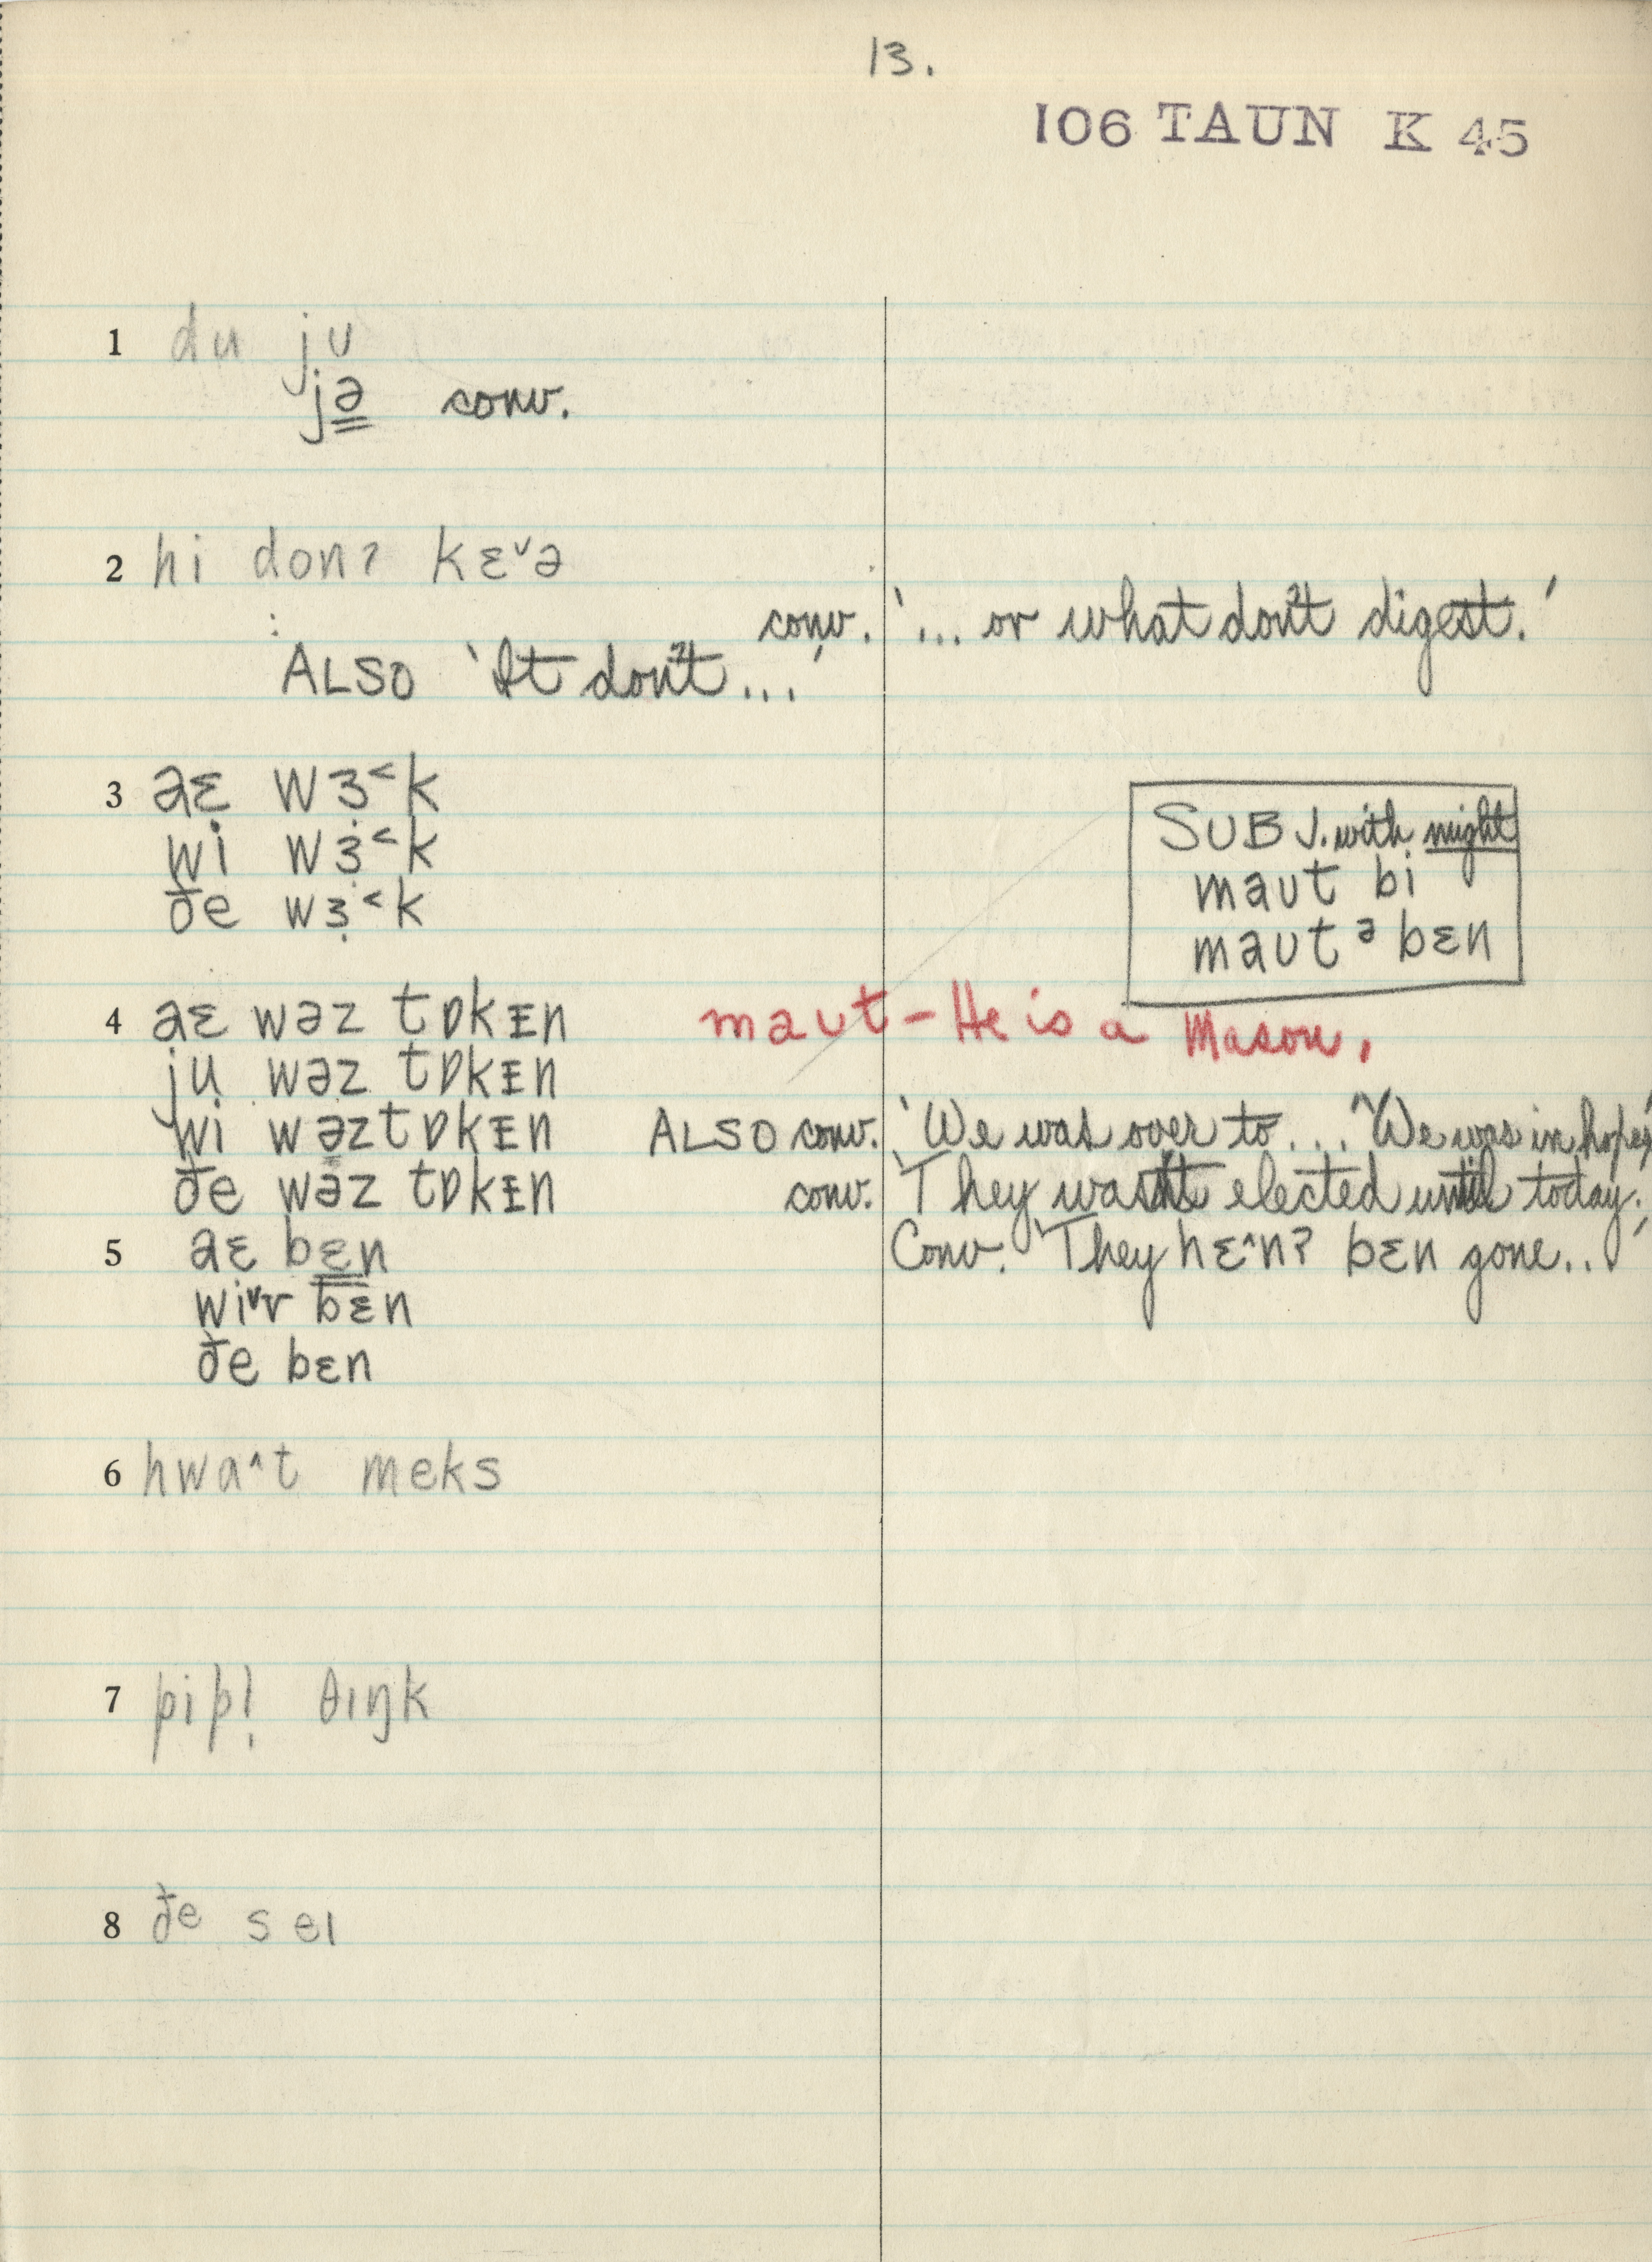 13.
106 TAUN K 45
1 du ju
jə conv.
2 hi donʔ kɛ˅ə
conv. '... or what don't digest.'
ALSO 'It don't ...'
3 aɛ wɜ˂k
wi wɜ̣˂k
ðe wɜ̣˂k
SUBJ. with might
maut bi
maut ə bɛn
4 aɛ wəz tɒkᴇn
maut – He is a Mason.
ju wəz tɒkᴇn
wi wəz tɒkᴇn ALSO conv. 'We was over to...' 'We was in hopes'
ðe wəz tɒkᴇn conv. 'They wasn't elected until today.'
5 aɛ bɛn Conv. 'They hɛ˄nʔ bɛn gone...'
wi˅r bɛn
ðe bɛn
6 hwa˄t meks
7 pipl̩ θɪŋk
8 ðe seɪ